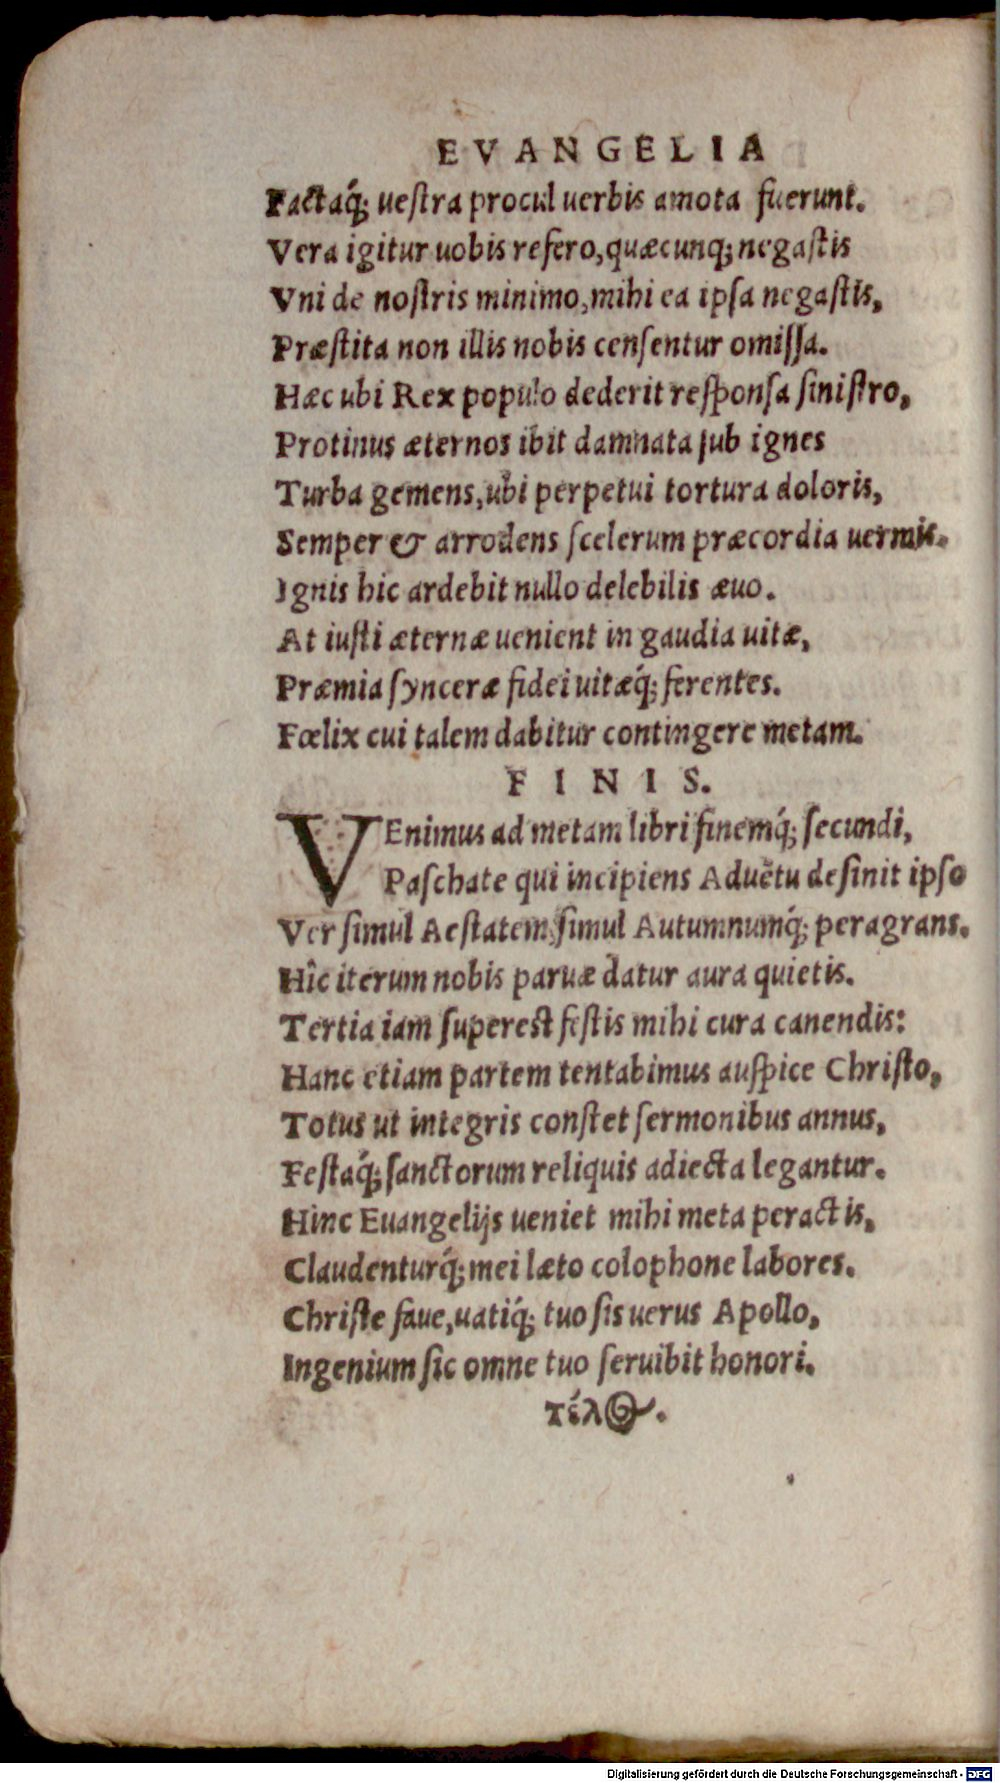 EVANGELIA
Factaq́; ueſtra procul uerbis amota fuerunt.
Vera igitur uobis refero, quæcunq; negaſtis
Vni de noſtris minimo, mihi ea ipſa negaſtis,
Præſtita non illis nobis cenſentur omiſſa.
Hæc ubi Rex populo dederit reſponſa ſiniſtro,
Protinus æternos ibit damnata ſub ignes
Turba gemens, ubi perpetui tortura doloris,
Semper & arrodens ſcelerum præcordia uermis.
Ignis hic ardebit nullo delebilis æuo.
At iuſti æternæ uenient in gaudia uitæ,
Præmia ſynceræ fidei uitæq́; ferentes.
Fœlix cui talem dabitur contingere metam.
FINIS.
VEnimus ad metam libri finemq́; ſecundi,
Paſchate qui incipiens Aduẽtu deſinit ipſo
Ver ſimul Aeſtatem, ſimul Autumnumq́; peragrans.
Hîc iterum nobis paruæ datur aura quietis.
Tertia iam ſupereſt feſtis mihi cura canendis:
Hanc etiam partem tentabimus auſpice Chriſto,
Totus ut integris conſtet ſermonibus annus,
Feſtaq́; ſanctorum reliquis adiecta legantur.
Hinc Euangelijs ueniet mihi meta peractis,
Claudenturq́; mei læto colophone labores.
Chriſte faue, uatiq́; tuo ſis uerus Apollo,
Ingenium ſic omne tuo ſeruibit honori.
Τέλος.
Digitalisierung gefördert durch die Deutsche Forschungsgemeinschaft - DFG